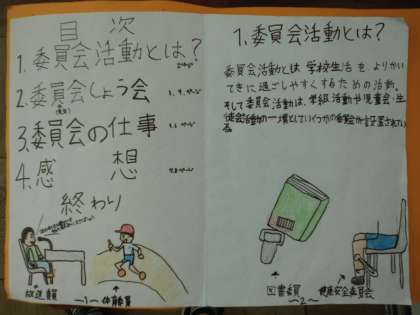 目次
1.委員会活動とは?
2.委員会しょう会
3.委員会の仕事
4.感想
終わり
放送委員
体育委員
ー1ー
1.委員会活動とは?
委員会活動とは学校生活をよりかい
てきに過ごしやすくするための活動。
そして委員会活動は、学級活動や児童会・生
徒会活動の一環としていくつかの委員会が設置されてい
る。
図書委員
健康安全委員会
ー2ー